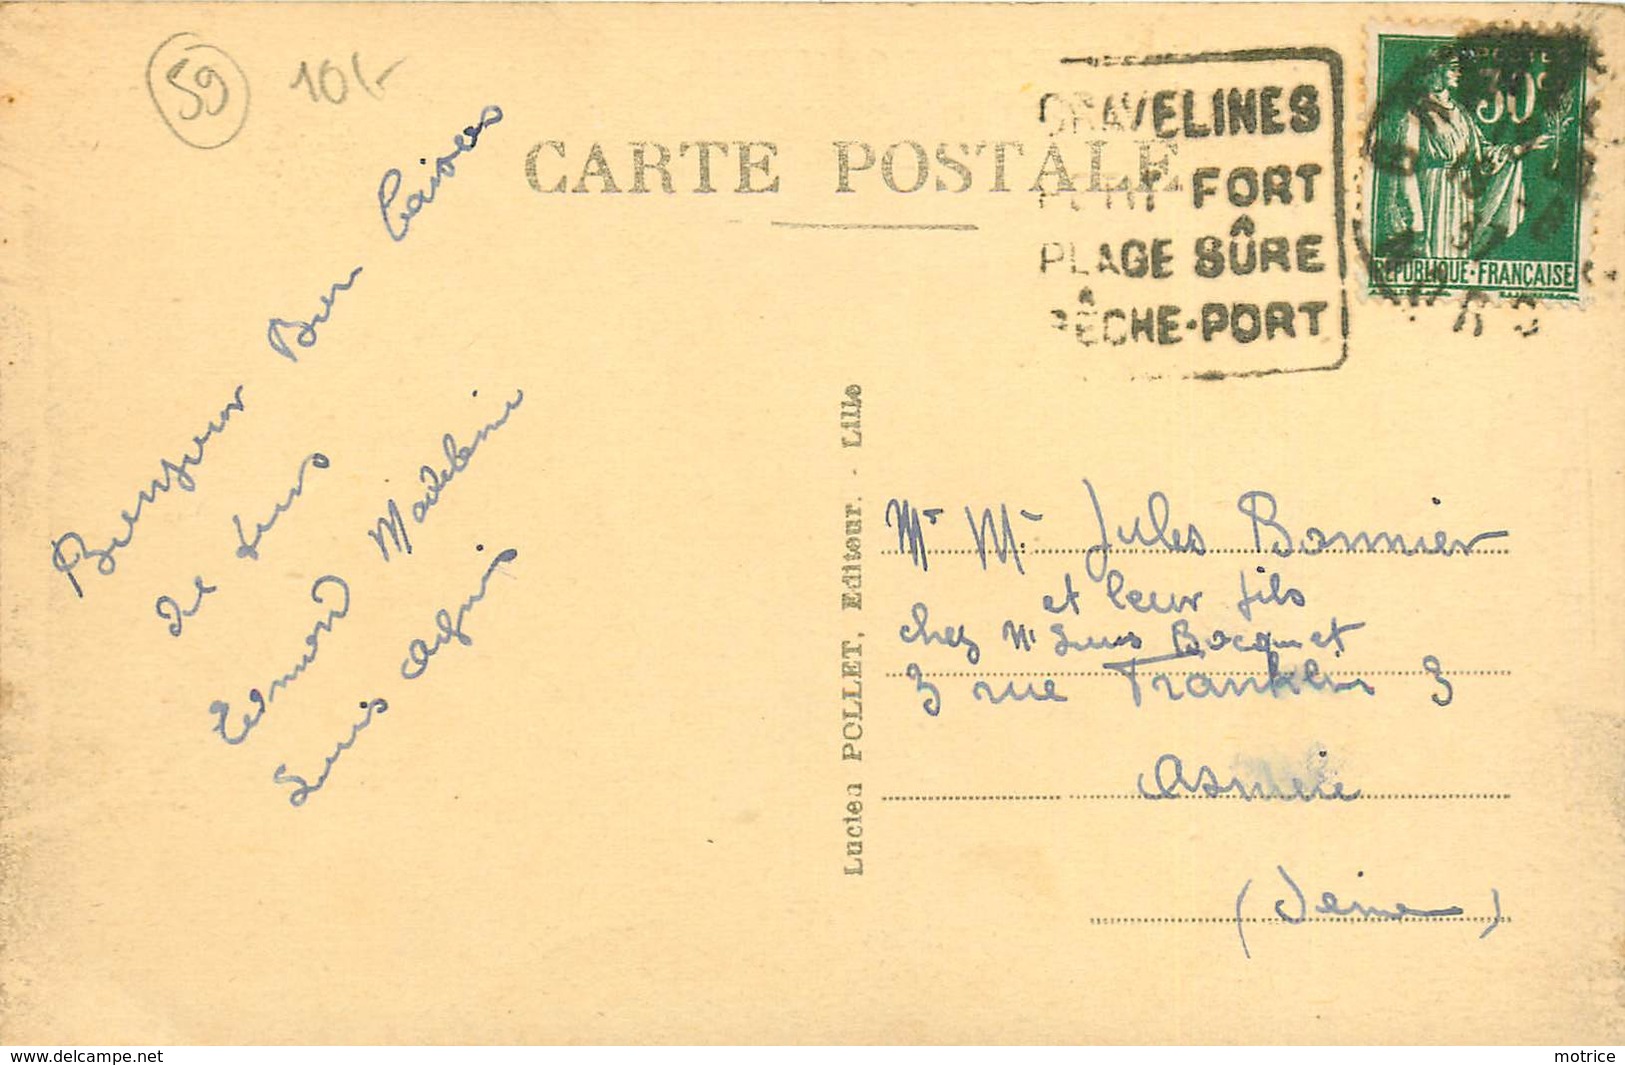 59 10/-
CARTE POSTALE
GRAVELINES
PETIT FORT
PLAGE SÛRE
PÊCHE-PORT
POSTES
30c
REPUBLIQUE·FRANÇAISE
Bonjour Bon Baisers
de tous
Edmond Madeleine
Louis
Lucien POLLET, Editeur. - Lille
Mr Me Jules Bonnier
et leur fils
chez Mr Louis Bocquet
3 rue Franklin 3
Asnière
(Seine)
www.delcampe.net
motrice